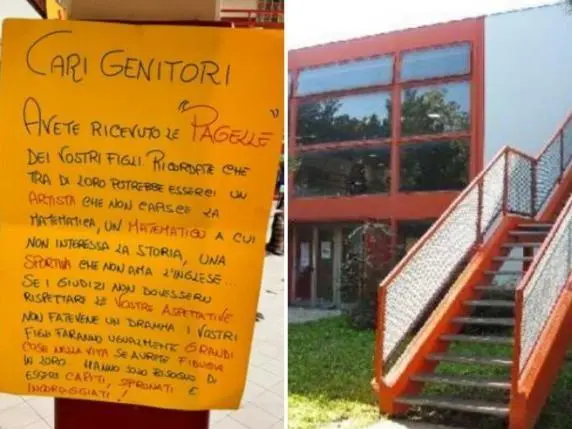 CARI GENITORI
AVETE RICEVUTO LE "PAGELLE"
DEI VOSTRI FIGLI. RICORDATE CHE
TRA DI LORO POTREBBE ESSERCI UN
ARTISTA CHE NON CAPISCE LA
MATEMATICA, UN MATEMATICO A CUI
NON INTERESSA LA STORIA, UNA
SPORTIVA CHE NON AMA L'INGLESE...
SE I GIUDIZI NON DOVESSERO
RISPETTARE LE VOSTRE ASPETTATIVE
NON FATEVENE UN DRAMMA I VOSTRI
FIGLI FARANNO UGUALMENTE GRANDI
COSE NELLA VITA SE AVRETE FIDUCIA
IN LORO. HANNO SOLO BISOGNO DI
ESSERE CAPITI, SPRONATI E
INCORAGGIATI!